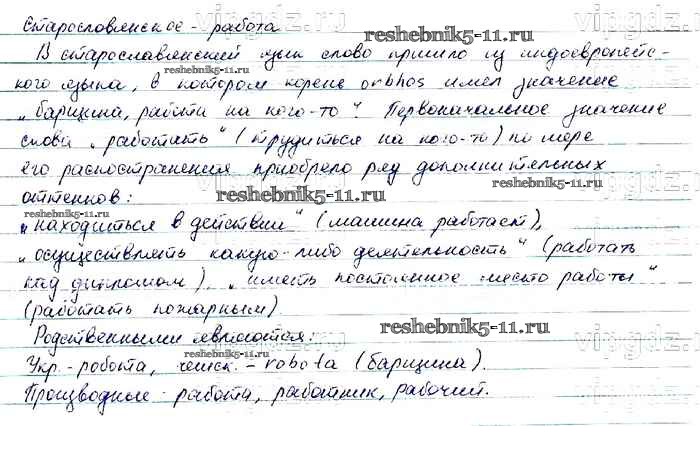 Старословянское - работа
В старославянский язык слово пришло из индоевропейс-
кого языка, в котором корень orbhos имел значение
„барщина, работа на кого-то". Первоначальное значение
слова „работать" (трудиться на кого-то) по мере
его распостранения приобрело ряд дополнительных
оттенков:
„находиться в действии" (машина работает),
„осуществлять какую-либо деятельность" (работать
над дипломом), „иметь постоянное место работы"
(работать пожарным).
Родственными являются:
Укр.-робота, чешск.-robota (барщина).
Производные - работа, работник, рабочий.
reshebnik5-11.ru
reshebnik5-11.ru
reshebnik5-11.ru
reshebnik5-11.ru
reshebnik5-11.ru
reshebnik5-11.ru
reshebnik5-11.ru
reshebnik5-11.ru
vipgdz.ru
vipgdz.ru
vipgdz.ru
vipgdz.ru